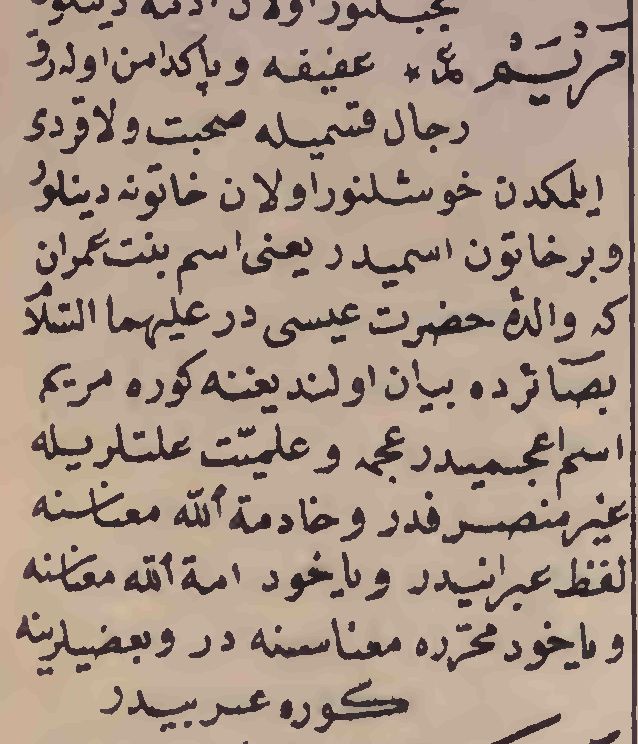 مَرْيَمْ ع م * عفيفه و پاكدامن اوله رق
رجال قسميله صحبت ولاقردى
ايلمكدن خوشلنور اولان خاتونه دينلور
وبر خاتون اسميدر يعنى اسم بنت عمران
كه والدۀ حضرت عيسى در عليهما السّلام
بصائرده بيان اولنديغنه كوره مريم
اسم اعجميدر عجمه و علميّت علتلريله
غير منصرفدر وخادمة اللّه معناسنه
لفظ عبرانيدر و ياخود امة اللّه معناسنه
و ياخود محرّره معناسنه در وبعضيلرينه
كوره عربيدر